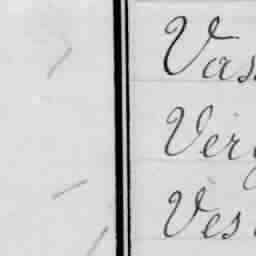 Vas
Verg
Ves